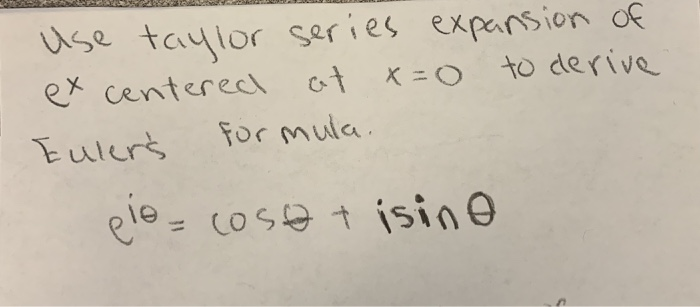 Use taylor series expansion of
e^x centered at x=0 to derive
Euler's formula.
e^iθ = cosθ + isinθ